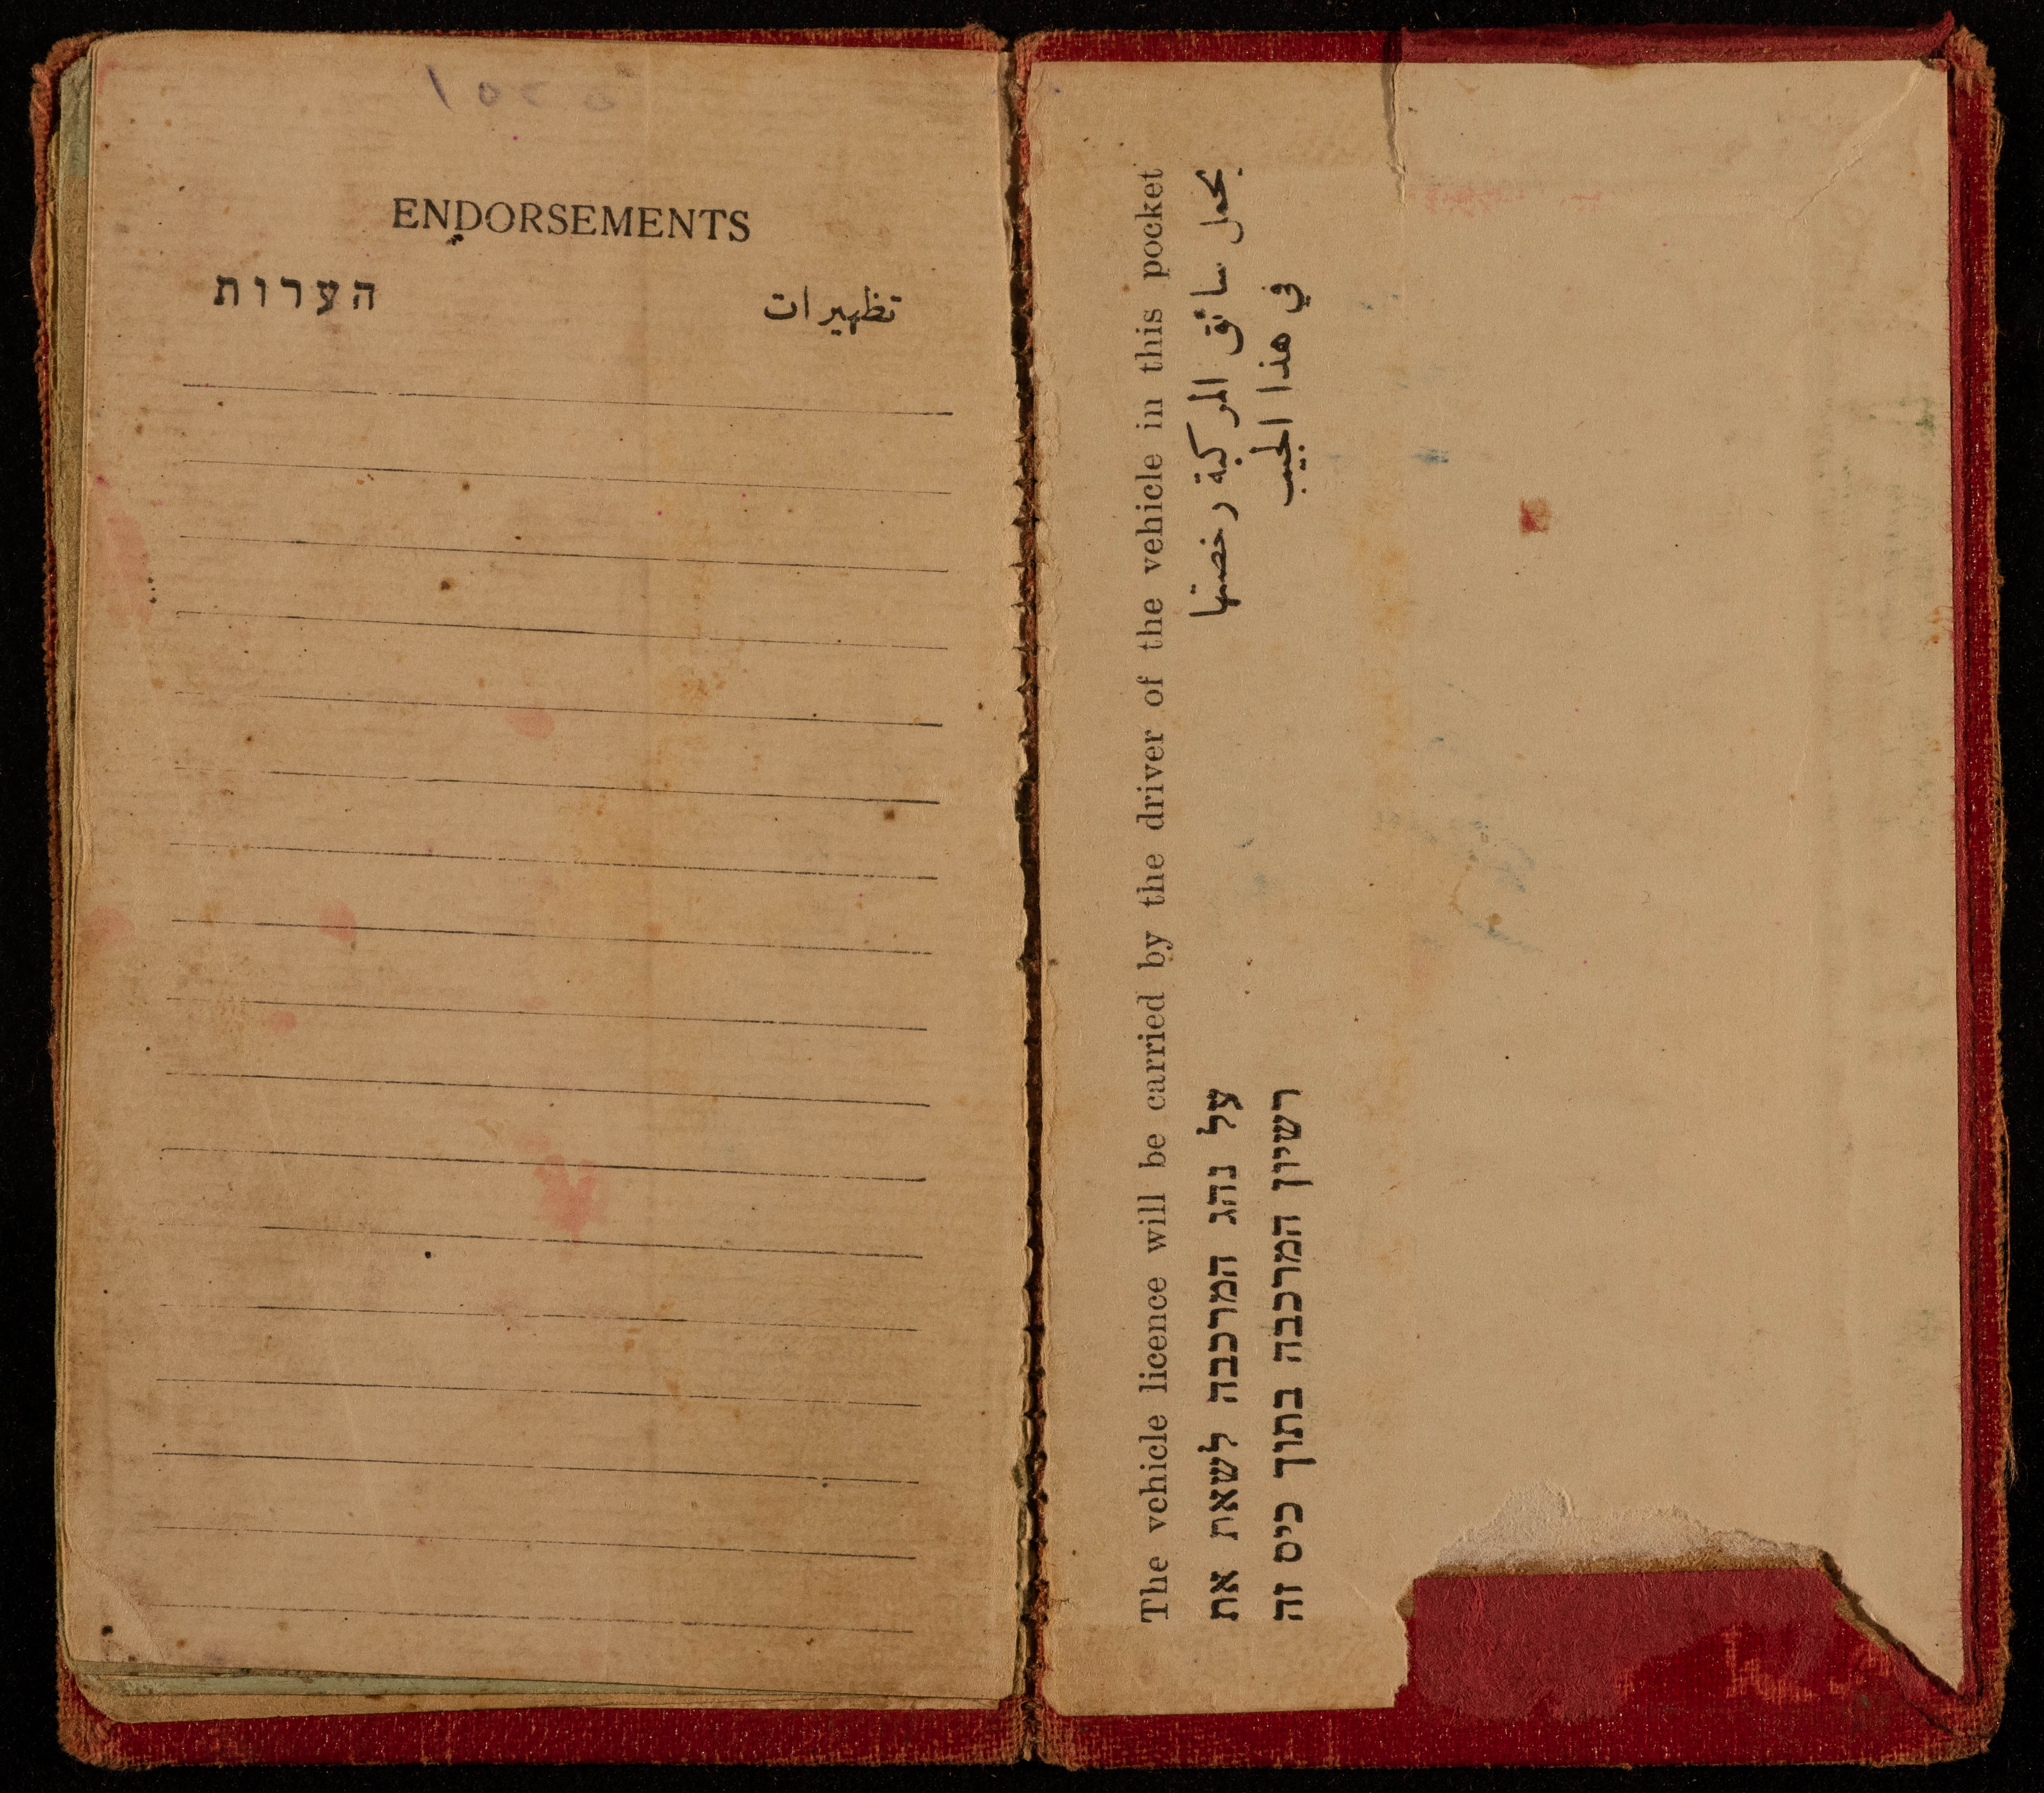 ENDORSEMENTS
הערות
تظهيرات
The vehicle licence will be carried by the driver of the vehicle in this pocket
يحمل سائق المركبة رخصتها
في هذا الجيب
על נהג המרכבה לשאת את
רשיון המרכבה בתוך כיס זה